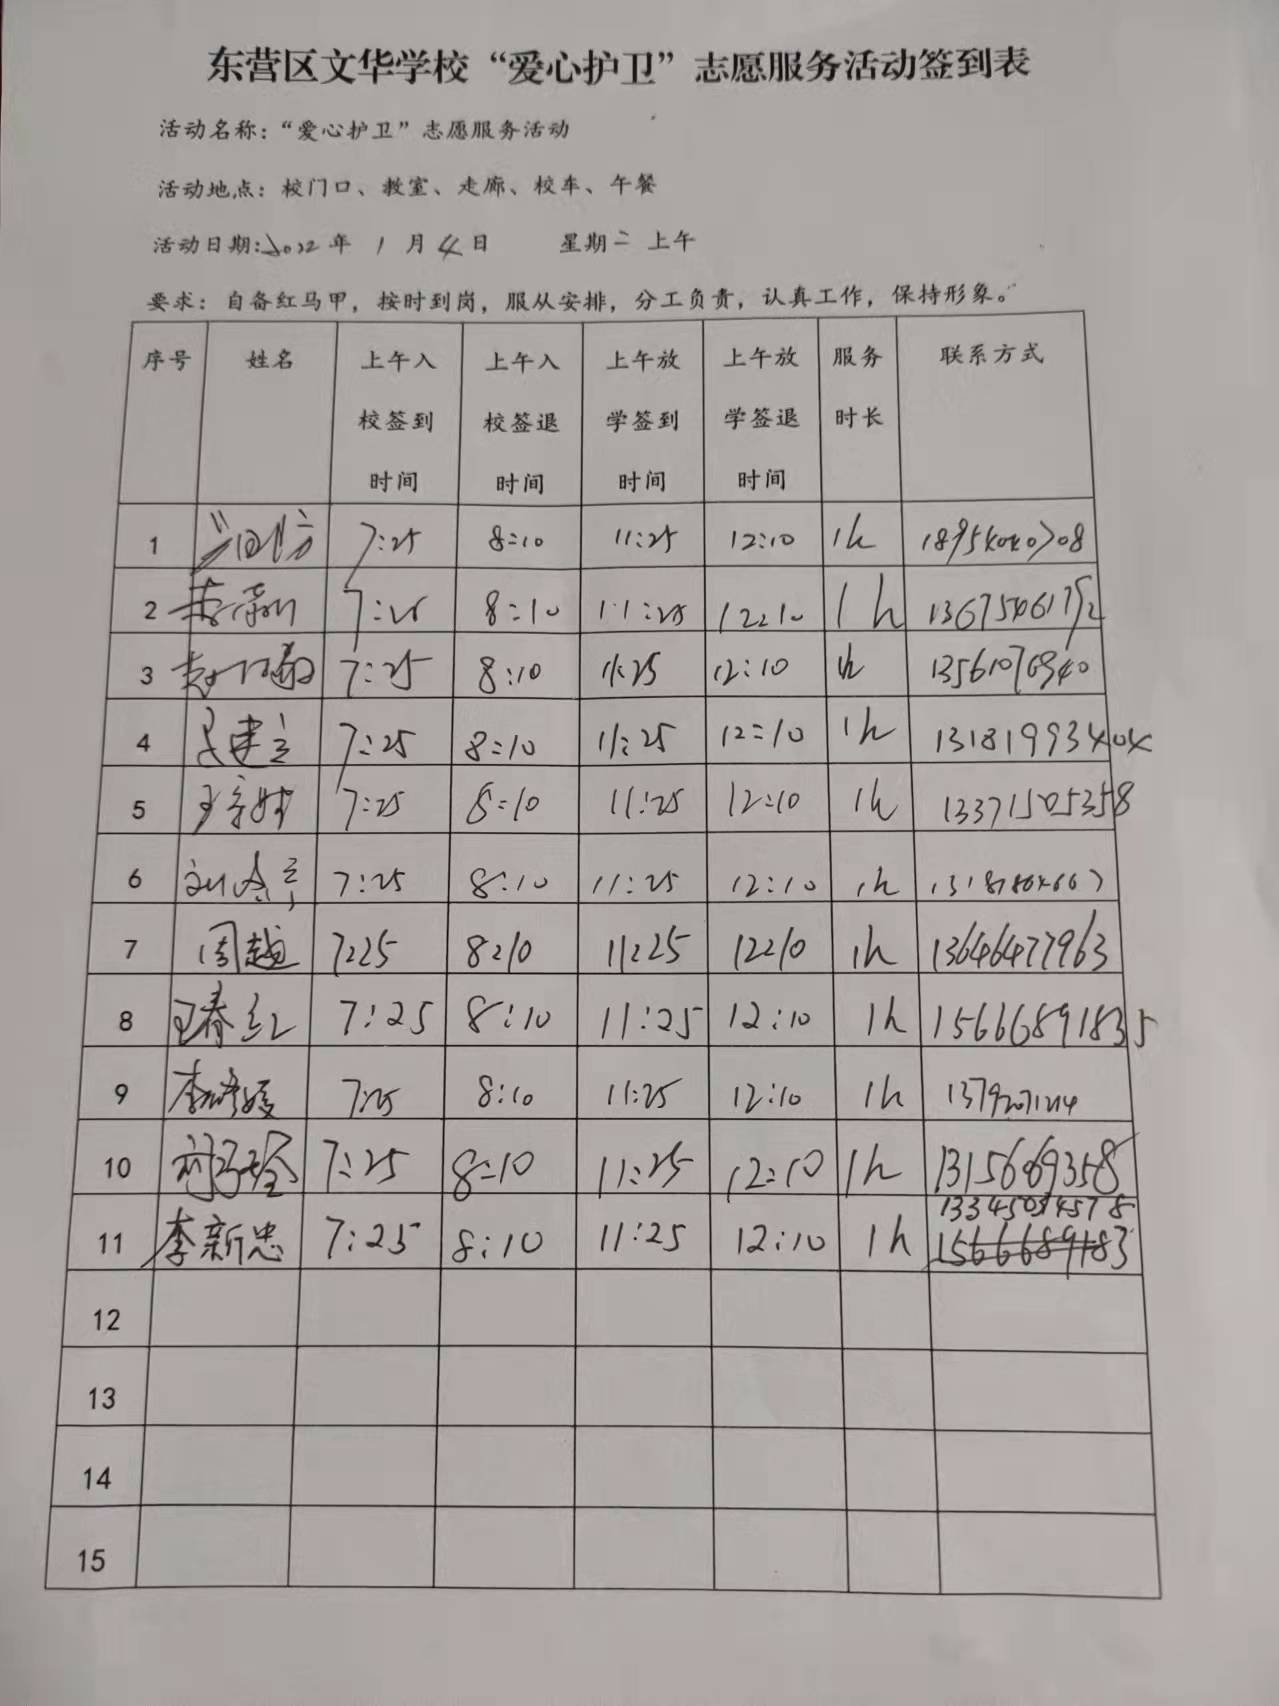 东营区文华学校“爱心护卫”志愿服务活动签到表
活动名称：“爱心护卫”志愿服务活动
活动地点：校门口、教室、走廊、校车、午餐
活动日期：2022年 1月4日 星期二 上午
要求：自备红马甲，按时到岗，服从安排，分工负责，认真工作，保持形象。
序号 姓名 上午入校签到时间 上午入校签退时间 上午放学签到时间 上午放学签退时间 服务时长 联系方式
1 7:25 8:10 11:25 12:10 1h
2 7:25 8:10 11:25 12:10 1h
3 7:25 8:10 11:25 12:10 1h
4 7:25 8:10 11:25 12:10 1h 13181993404
5 7:25 8:10 11:25 12:10 1h 13371505358
6 7:25 8:10 11:25 12:10 1h
7 周越 7:25 8:10 11:25 12:10 1h 13646477963
8 王春红 7:25 8:10 11:25 12:10 1h 15666891835
9 7:25 8:10 11:25 12:10 1h
10 7:25 8:10 11:25 12:10 1h
13345094578
11 李新忠 7:25 8:10 11:25 12:10 1h 1566689183
12
13
14
15